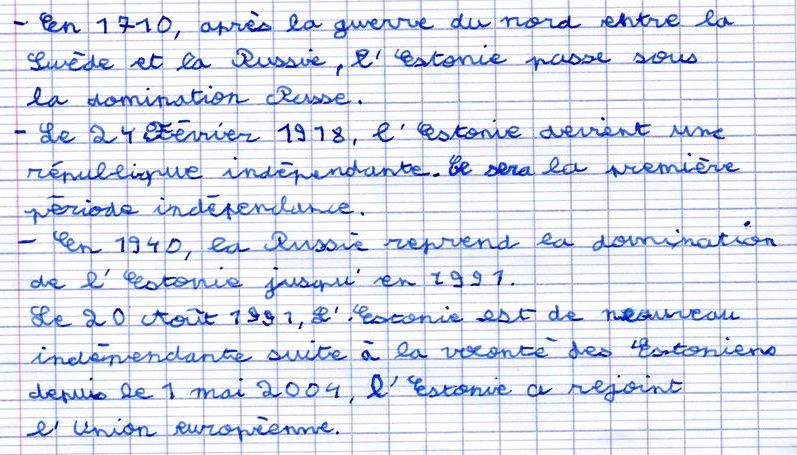 - En 1710, après la guerre du nord entre la
Suède et la Russie, l'Estonie passe sous
la domination Russe.
- Le 24 Février 1918, l'Estonie devient une
république indépendante. Ce sera la première
période indépendance.
- En 1940, la Russie reprend la domination
de l'Estonie jusqu'en 1991.
Le 20 Août 1991, l'Estonie est de nouveau
indépendante suite à la volonté des Estoniens
depuis le 1 mai 2004, l'Estonie a rejoint
l'Union européenne.